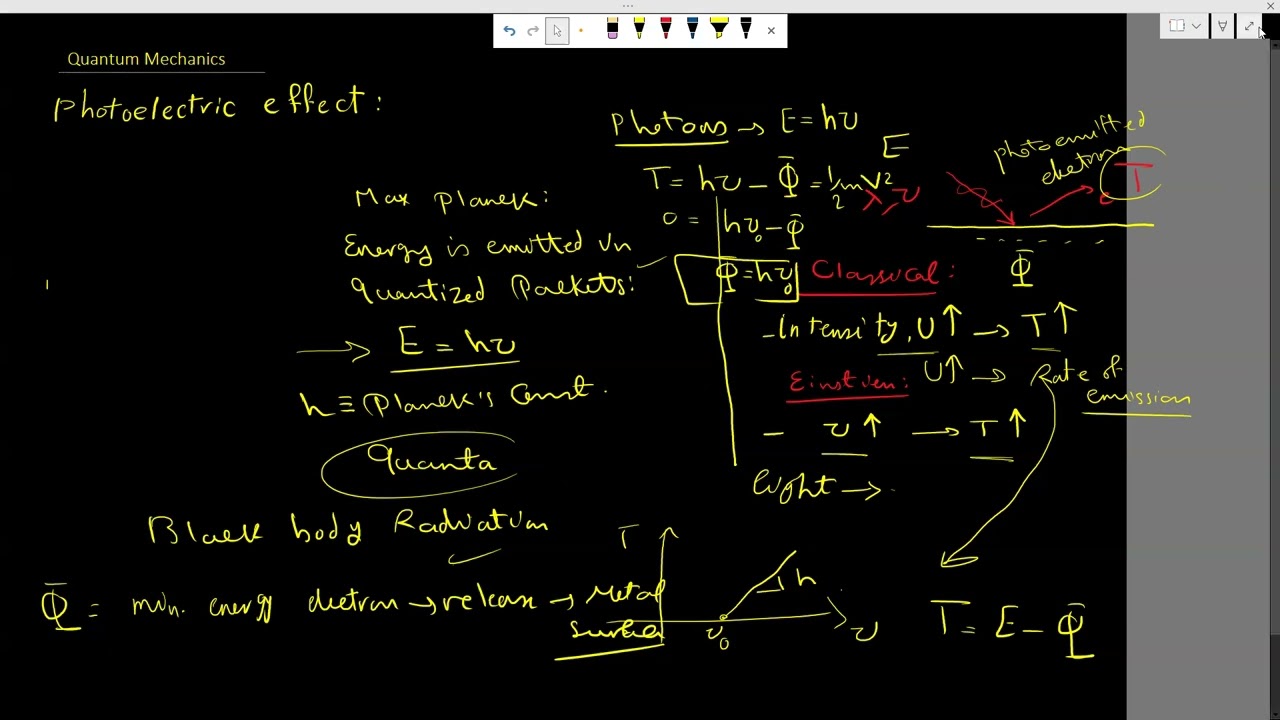 Quantum Mechanics
Photoelectric effect:
Max Planck:
Energy is emitted in
quantized Packets:
E = hν
h ≡ Planck's Const.
Quanta
Black body Radiation
Φ = min. energy electron → release → Metal
Surface
Photons → E = hν
E
T = hν - Φ = 1/2 mv²
λ, ν
0 = hν₀ - Φ
Φ = hν₀
photoemitted
electron
T
e
Φ
Classical:
- Intensity, U↑ → T↑
Einstien: U↑ → Rate of
emission
- ν↑ → T↑
light →
T
h
ν₀
ν
T = E - Φ